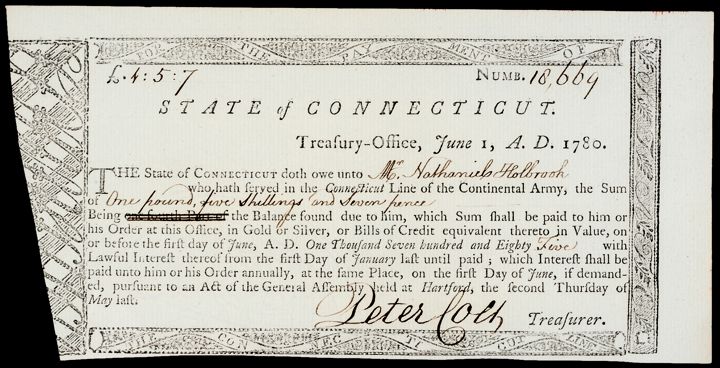 FOR THE PAYMENT OF
£. 4 : 5 : 7 NUMB. 18,669
STATE of CONNECTICUT.
Treasury-Office, June 1, A. D. 1780.
THE State of CONNECTICUT doth owe unto Mr. Nathaniel Holbrook
who hath ſerved in the Connecticut Line of the Continental Army, the Sum
of One pound, five Shillings and Seven pence
Being one fourth Part of the Balance found due to him, which Sum ſhall be paid to him or
his Order at this Office, in Gold or Silver, or Bills of Credit equivalent thereto in Value, on
or before the firſt day of June, A. D. One Thouſand Seven hundred and Eighty Five with
Lawful Intereſt thereof from the firſt Day of January laſt until paid; which Intereſt ſhall be
paid unto him or his Order annually, at the ſame Place, on the firſt Day of June, if demand-
ed, purſuant to an Act of the General Aſſembly held at Hartford, the ſecond Thurſday of
May laſt.
Peter Colt Treaſurer.
THE CONNECTICUT LINE